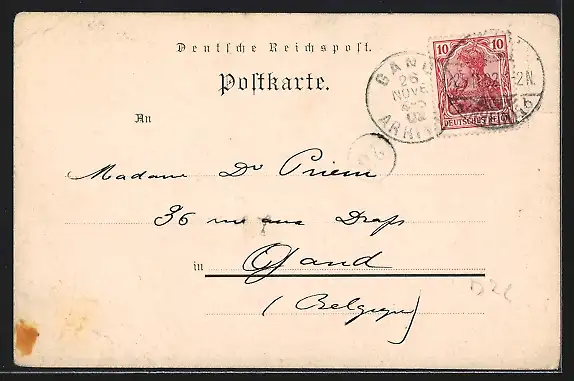 Deutsche Reichspost.
Postkarte.
10 10
DEUTSCHES REICH
GAND
26
NOVE
4-5
02
ARRIV
2-3N.
An
Madame Dr Priem
36 rue aux Draps
in Gand
(Belgique)